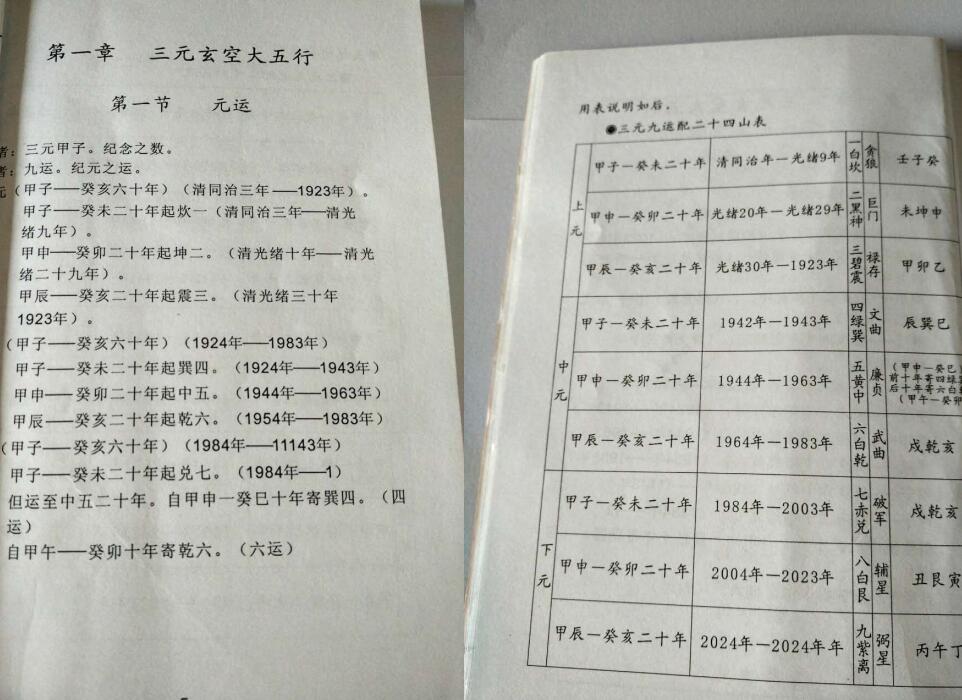 第一章 三元玄空大五行
第一节 元运
者：三元甲子。纪念之数。
者：九运。纪元之运。
元（甲子——癸亥六十年）（清同治三年——1923年）。
甲子——癸未二十年起炊一（清同治三年——清光
绪九年）。
甲申——癸卯二十年起坤二。（清光绪十年——清光
绪二十九年）。
甲辰——癸亥二十年起震三。（清光绪三十年
1923年）。
（甲子——癸亥六十年）（1924年——1983年）
甲子——癸未二十年起巽四。（1924年——1943年）
甲申——癸卯二十年起中五。（1944年——1963年）
甲辰——癸亥二十年起乾六。（1954年——1983年）
（甲子——癸亥六十年）（1984年——11143年）
甲子——癸未二十年起兑七。（1984年——1）
但运至中五二十年。自甲申一癸巳十年寄巽四。（四
运）
自甲午——癸卯十年寄乾六。（六运）
用表说明如后.
●三元九运配二十四山表
上元
甲子—癸未二十年 清同治年—光绪9年 一白坎 贪狼 壬子癸
甲申—癸卯二十年 光绪20年—光绪29年 二黑神 巨门 未坤申
甲辰—癸亥二十年 光绪30年—1923年 三碧震 禄存 甲卯乙
中元
甲子—癸未二十年 1942年—1943年 四绿巽 文曲 辰巽巳
甲申—癸卯二十年 1944年—1963年 五黄中 廉贞 （甲申—癸巳）
前十年寄四绿
后十年寄六白
（甲午—癸卯
甲辰—癸亥二十年 1964年—1983年 六白乾 武曲 戍乾亥
下元
甲子—癸未二十年 1984年—2003年 七赤兑 破军 戍乾亥
甲申—癸卯二十年 2004年—2023年 八白艮 辅星 丑艮寅
甲辰—癸亥二十年 2024年—2024年年 九紫离 弼星 丙午丁